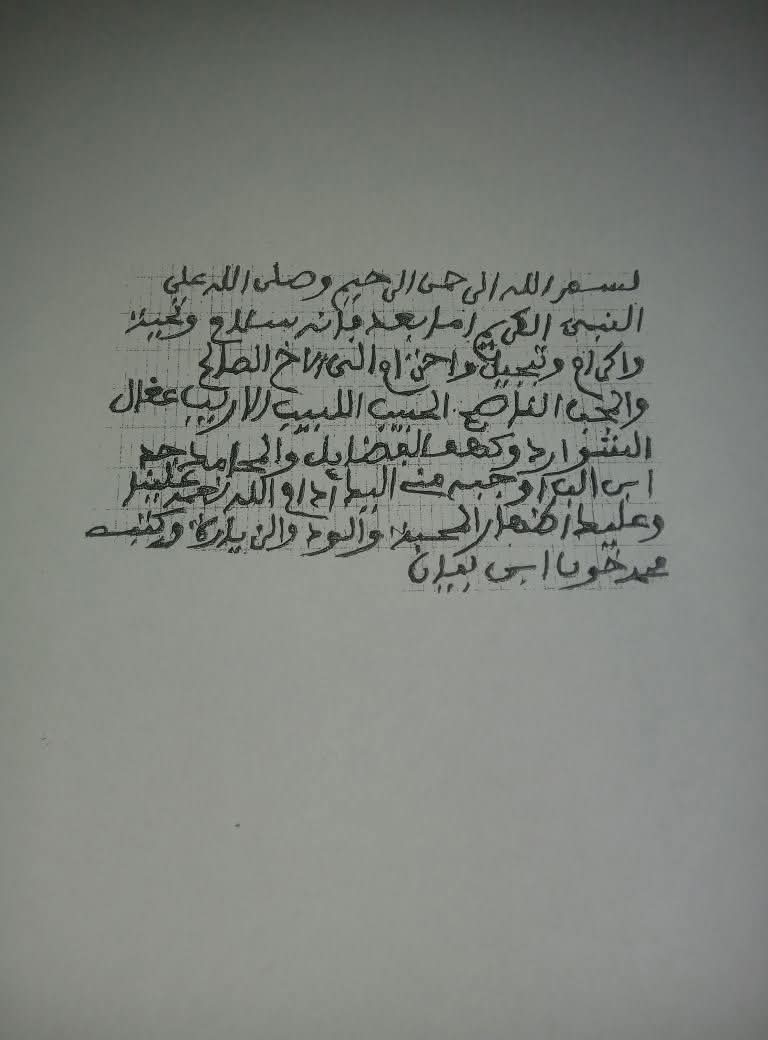 بسم الله الرحمن الرحيم وصلى الله على
النبي الكريم اما بعد فإنه سلام وتحية
واكرام وتبجيل واحترام الى الاخ الصالح
والمحب الناصح الحبيب اللبيب الاريب عقال
الشوارد وكهف الفضايل والمحامد
ابن موجبه منه اليه أدام الله نعمه علينا
وعليه اظهار المحبة والود والزيارة وكتبه
محمد ابن